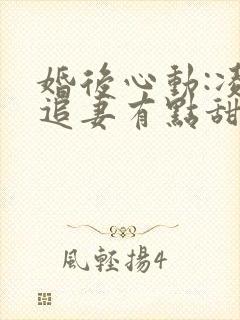 婚後心動:凌
追妻有點甜
風輕揚4